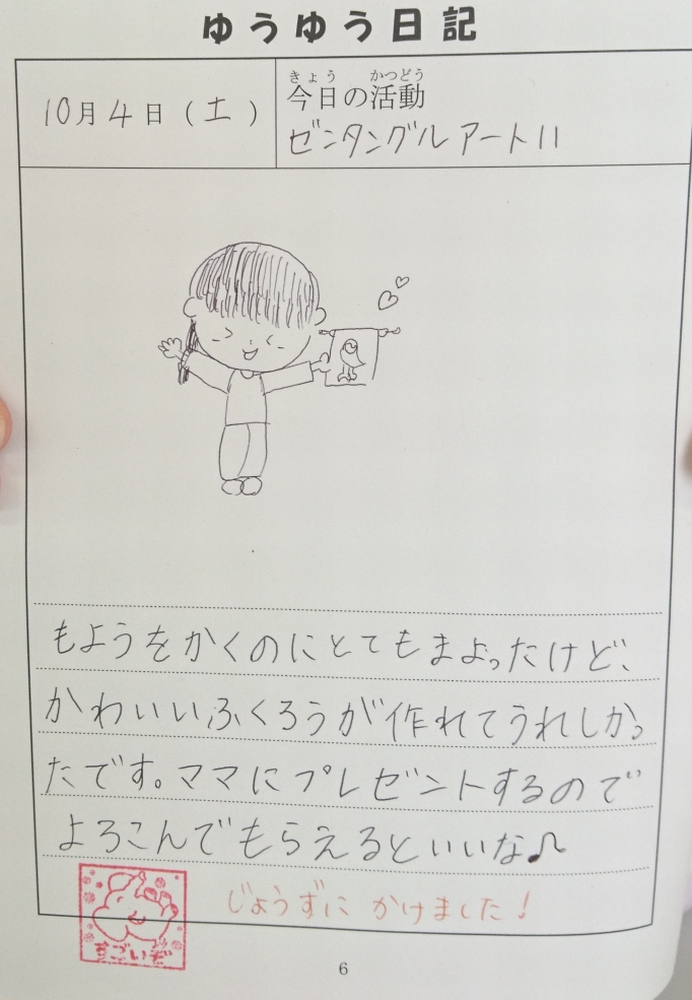 ゆうゆう日記
10月4日(土)
きょう かつどう
今日の活動
ゼンタングルアート11
もようをかくのにとてもまよったけど、
かわいいふくろうが作れてうれしかっ
たです。ママにプレゼントするので
よろこんでもらえるといいな♫
じょうずにかけました!
すごいぞ
6